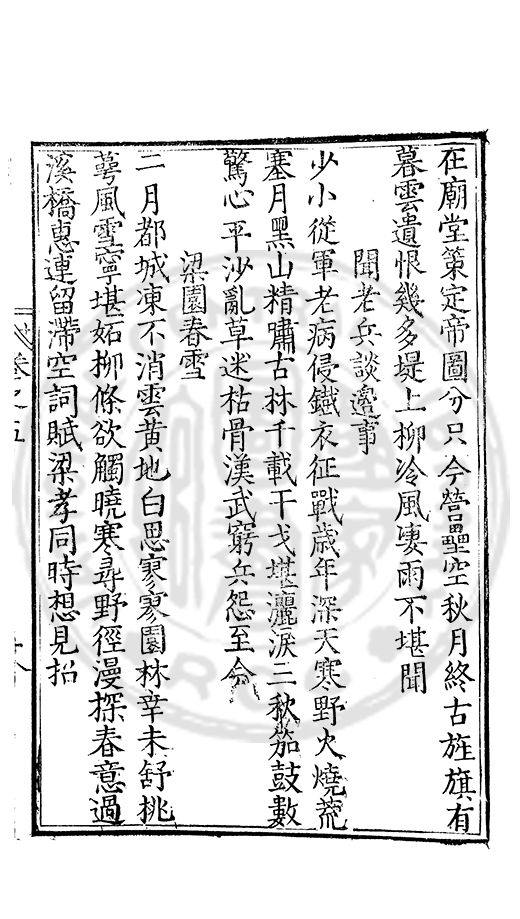 在廟堂策定帝圖分只今營壘空秋月終古旌旗有
暮雲遺恨幾多堤上柳冷風凄雨不堪聞
聞老兵談邊事
少小從軍老病侵鐵衣征戰歲年深天寒野火燒荒
塞月黑山精嘯古林千載干戈堪灑淚三秋笳鼓數
驚心平沙亂草迷枯骨漢武窮兵怨至今
梁園春雪
二月都城凍不消雲黄地白思寥寥園林幸未舒桃
萼風雪寧堪妬柳條欲觸曉寒尋野徑漫探春意過
溪橋惠連留滯空詞賦梁孝同時想見招
卷之五